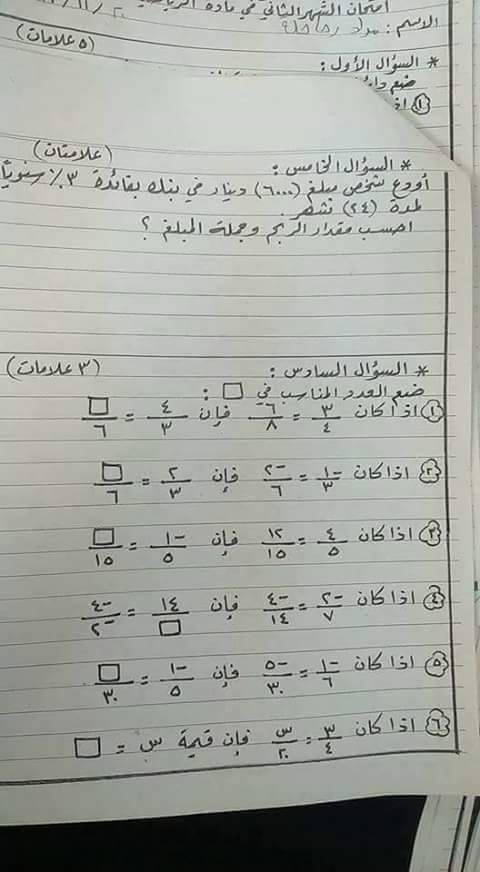 امتحان الشهر الثاني في مادة
الاسم :
(٥ علامات)
* السؤال الأول :
ضع
① اذ
* السؤال الخامس : (علامتان)
أودع شخص مبلغ (٦٠٠٠) دينار في بنك بفائدة ٣٪ سنوياً
لمدة (٢٤) شهر .
احسب مقدار الربح وجملة المبلغ ؟
* السؤال السادس : (٣ علامات)
ضع العدد المناسب في □ :
① اذا كان ٣/٤ = ٦/٨ فإن ٤/٣ = □/٦
② اذا كان -١/٣ = -٢/٦ فإن ٢/٣ = □/٦
③ اذا كان ٤/٥ = ١٢/١٥ فإن -١/٥ = □/١٥
④ اذا كان -٢/٧ = -٤/١٤ فإن ١٤/□ = -٤/-٢
⑤ اذا كان -١/٦ = -٥/٣٠ فإن -١/٥ = □/٣٠
⑥ اذا كان ٣/٤ = س/٢٠ فإن قيمة س = □